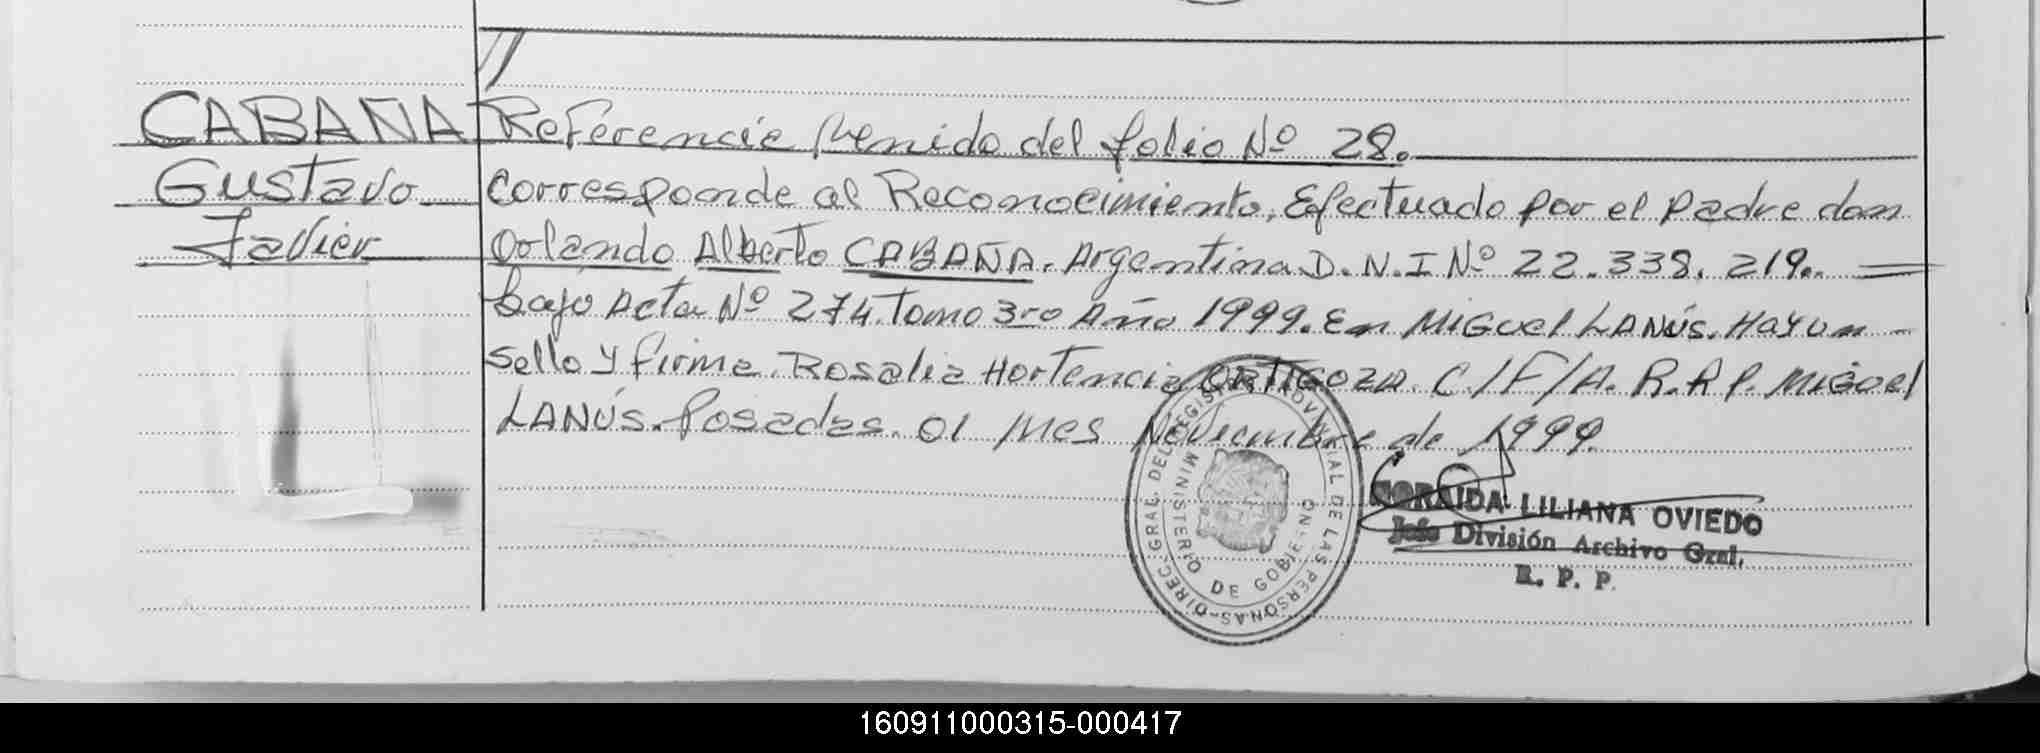 CABAÑA Referencia venido del folio Nº 28.
Gustavo corresponde al Reconocimiento, Efectuado por el padre don
Javier Orlando Alberto CABAÑA. Argentina D.N.I Nº 22.338.219.
bajo Acta Nº 274. Tomo 3ro Año 1999. En MiGuel LANÚS. Hay un
sello y firma. Rosalia Hortencia ORTIGOZA. C/F/A. R.R.P. MiGuel
LANÚS. Posadas. 01 Mes Noviembre de 1999.
DIREC. GRAL. DEL REGISTRO PROVINCIAL DE LAS PERSONAS
MINISTERIO DE GOBIERNO
ZORAIDA LILIANA OVIEDO
Jefe División Archivo Gral.
R. P. P.
160911000315-000417